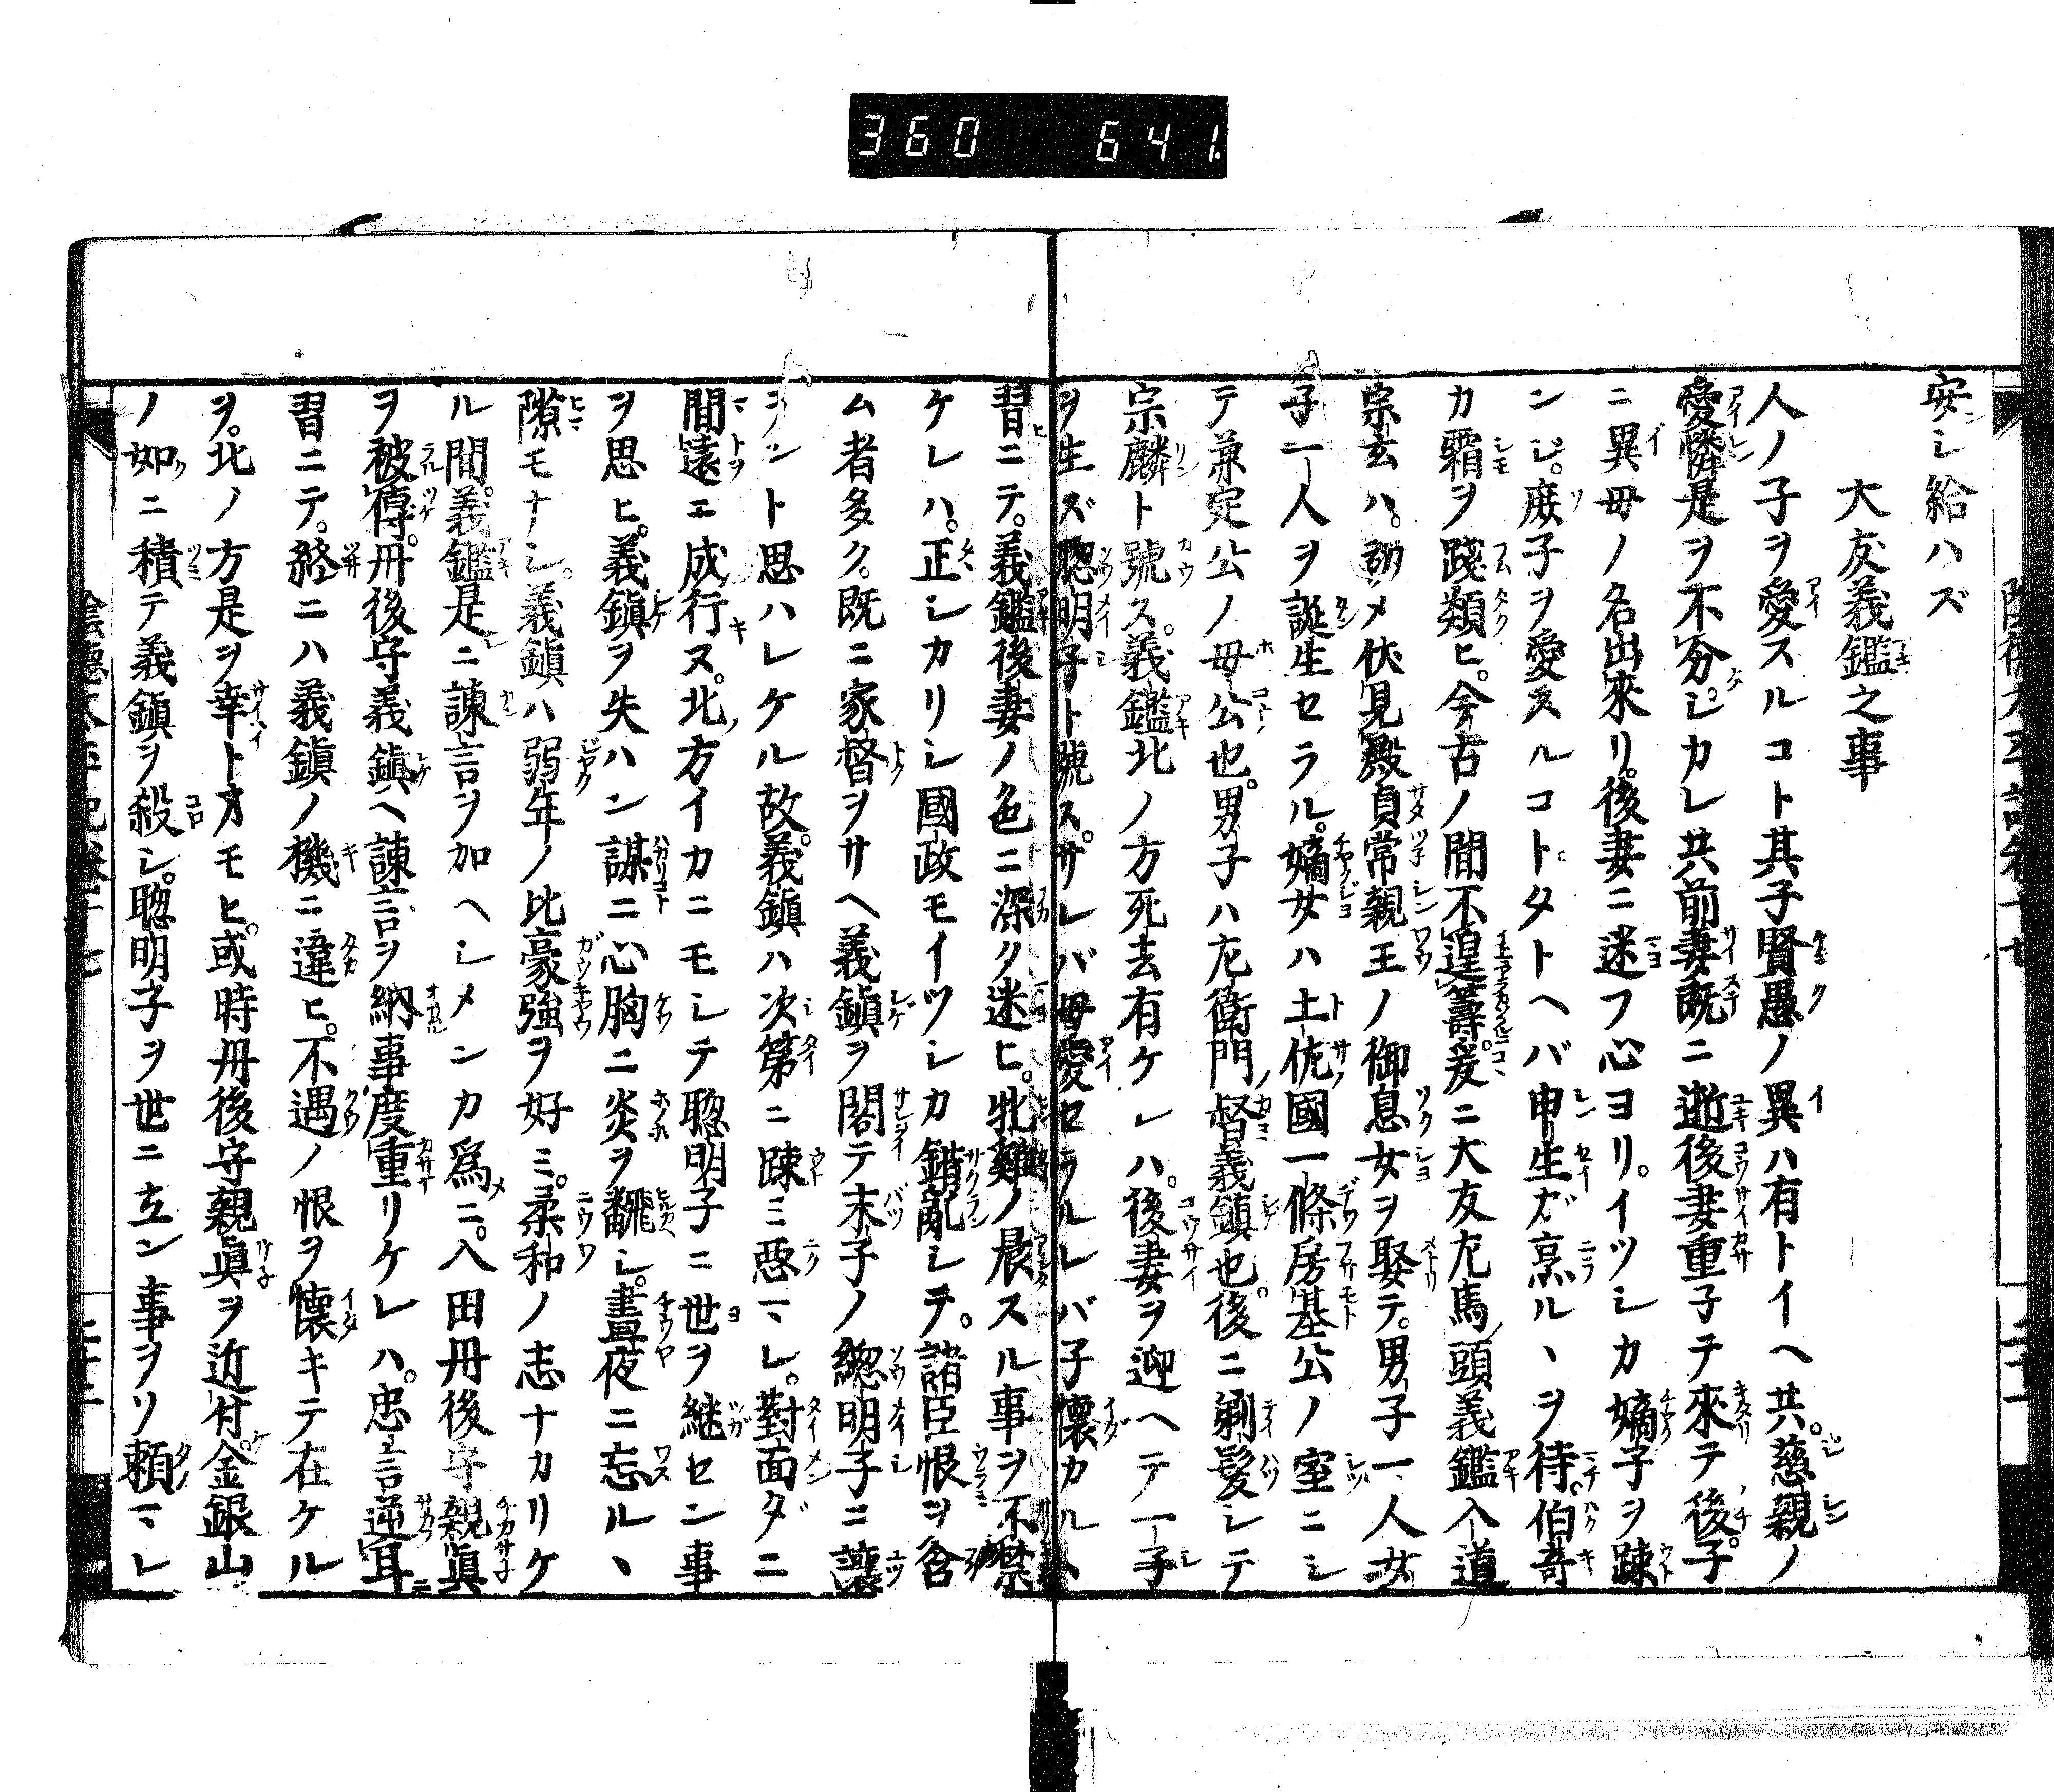 360 641
安シ給ハズ
大友義鑑之事
人ノ子ヲ愛スルコト其子賢愚ノ異ハ有トイヘ共。慈親ノ
愛憐是ヲ不分。シカレ共前妻既ニ逝後妻重子テ來テ後。子
ニ異母ノ名出來リ。後妻ニ迷フ心ヨリ。イツシカ嫡子ヲ踈
ンジ。庶子ヲ愛スルコト。タトヘバ申生ガ烹ルヽヲ待。伯奇
カ霜ヲ踐類ヒ。今古ノ間不遑籌。爰ニ大友左馬頭義鑑入道
宗玄ハ。初メ伏見殿貞常親王ノ御息女ヲ娶テ。男子一人女
子一人ヲ誕生セラル。嫡女ハ土佐國一條房基公ノ室ニシ
テ兼定公ノ母公也。男子ハ左衛門督義鎭也。後ニ剃髪シテ
宗麟ト號ス。義鑑北ノ方死去有ケレハ。後妻ヲ迎ヘテ一子
ヲ生ズ聰明子ト號ス。サレバ母愛セラルレバ子懷カルヽ
習ニテ。義鑑後妻ノ色ニ深ク迷ヒ。牝雞ノ晨スル事ヲ不禁
ケレハ。正シカリシ國政モイツシカ錯亂シテ。諸臣恨ヲ含
ム者多ク。既ニ家督ヲサヘ義鎭ヲ閣テ末子ノ聰明子ニ讓
ラント思ハレケル故。義鎭ハ次第ニ踈ミ惡マレ。對面ダニ
間遠エ成行ヌ。北ノ方イカニモシテ聰明子ニ世ヲ継セン事
ヲ思ヒ。義鎭ヲ失ハン謀ニ心胸ニ炎ヲ飜シ。晝夜ニ忘ルヽ
隙モナシ。義鎭ハ弱年ノ比豪強ヲ好ミ。柔和ノ志ナカリケ
ル間。義鑑是ニ諫言ヲ加ヘシメンカ爲ニ。入田丹後守親眞
ヲ被傅。丹後守義鎭ヘ諫言ヲ納事度重リケレハ。忠言逆耳
習ニテ。終ニハ義鎭ノ機ニ違ヒ。不遇ノ恨ヲ懷キテ在ケル
ヲ。北ノ方是ヲ幸トオモヒ。或時丹後守親眞ヲ近付。金銀山
ノ如ニ積テ義鎭ヲ殺シ。聰明子ヲ世ニ立ン事ヲソ頼マレ